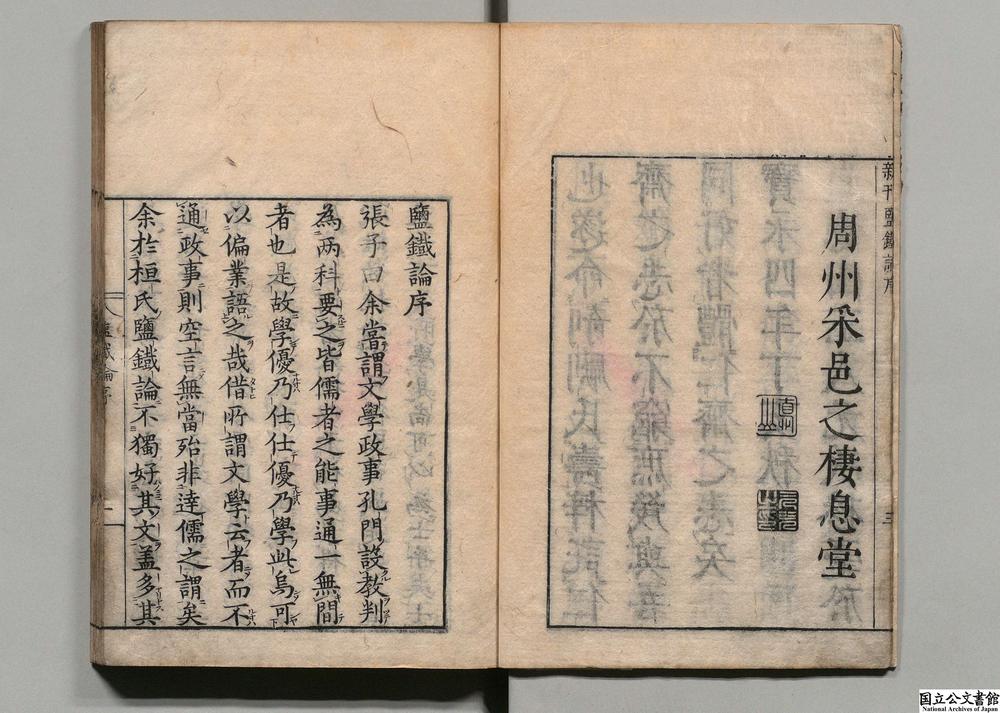 周州采邑之棲息堂
鹽鐵論序
張子曰余嘗謂文學政事孔門設教判
為两科要之皆儒者之能事通一無間
者也是故學優乃仕仕優乃學此烏可
以偏業語之哉借所謂文學云者而不
通政事則空言無當殆非達儒之謂矣
余於桓氏鹽鐵論不獨好其文盖多其
国立公文書館
National Archives of Japan